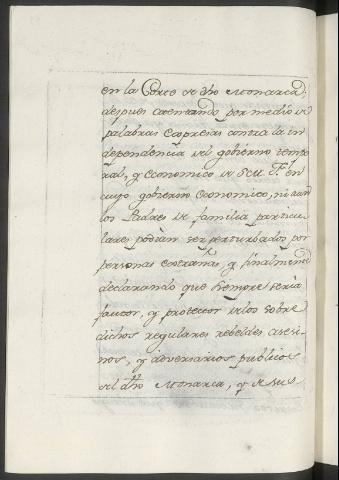 en la Corte de dho Monarca;
despues atentando por medio de
palabras expresas contra la in
dependencia del gobierno tempo
ral, y economico de seu F. en
cuyo gobierno economico, ni aun
los Padres de familia particu
lares podian ser perturbados por
personas extrañas, y finalmente
declarando que siempre seria
fautor, y protector de los sobre
dichos regulares rebeldes asesi
nos, y adversarios publicos
del dho Monarca, y de sus